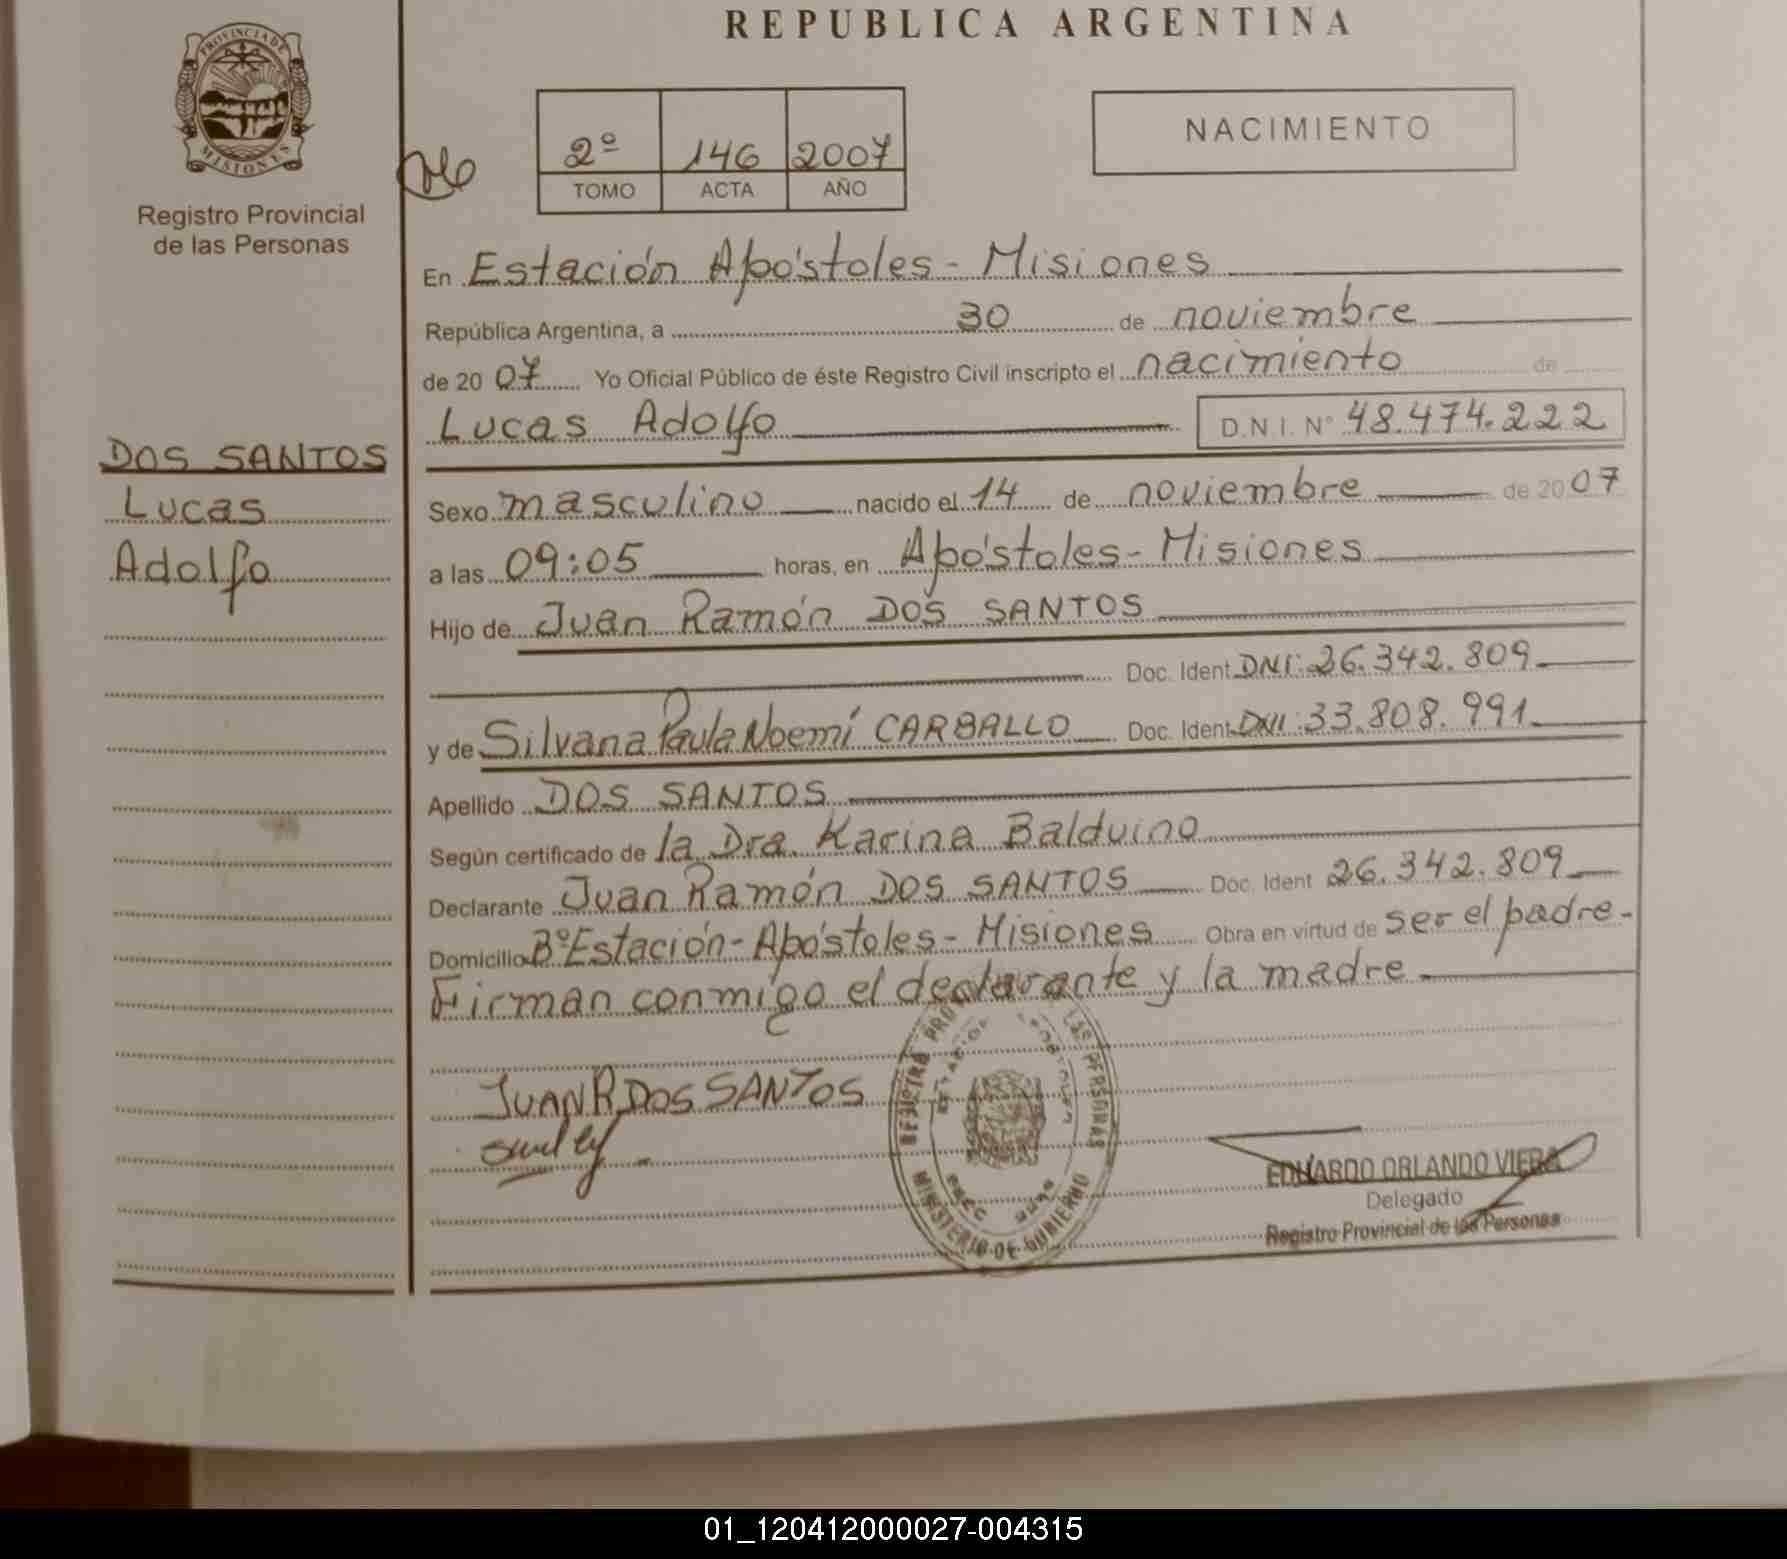 REPUBLICA ARGENTINA
PROVINCIA DE
MISIONES
Registro Provincial
de las Personas
2º 146 2007
TOMO ACTA AÑO
NACIMIENTO
En Estación Apóstoles - Misiones
República Argentina, a 30 de noviembre
de 2007 Yo Oficial Público de éste Registro Civil inscripto el nacimiento de
Lucas Adolfo D.N.I. Nº 48.474.222
DOS SANTOS
Lucas
Adolfo
Sexo masculino nacido el 14 de noviembre de 2007
a las 09:05 horas, en Apóstoles - Misiones
Hijo de Juan Ramón DOS SANTOS
Doc. Ident DNI: 26.342.809
y de Silvana Paula Noemí CARBALLO Doc. Ident DNI: 33.808.991
Apellido DOS SANTOS
Según certificado de la Dra. Karina Balduino
Declarante Juan Ramón DOS SANTOS Doc. Ident 26.342.809
Domicilio Bº Estación - Apóstoles - Misiones Obra en virtud de ser el padre.-
Firman conmigo el declarante y la madre
JUAN R. DOS SANTOS
REGISTRO PROV LAS PERSONAS
MINISTERIO DE GOBIERNO
EDUARDO ORLANDO VIERA
Delegado
Registro Provincial de las Personas
01_120412000027-004315